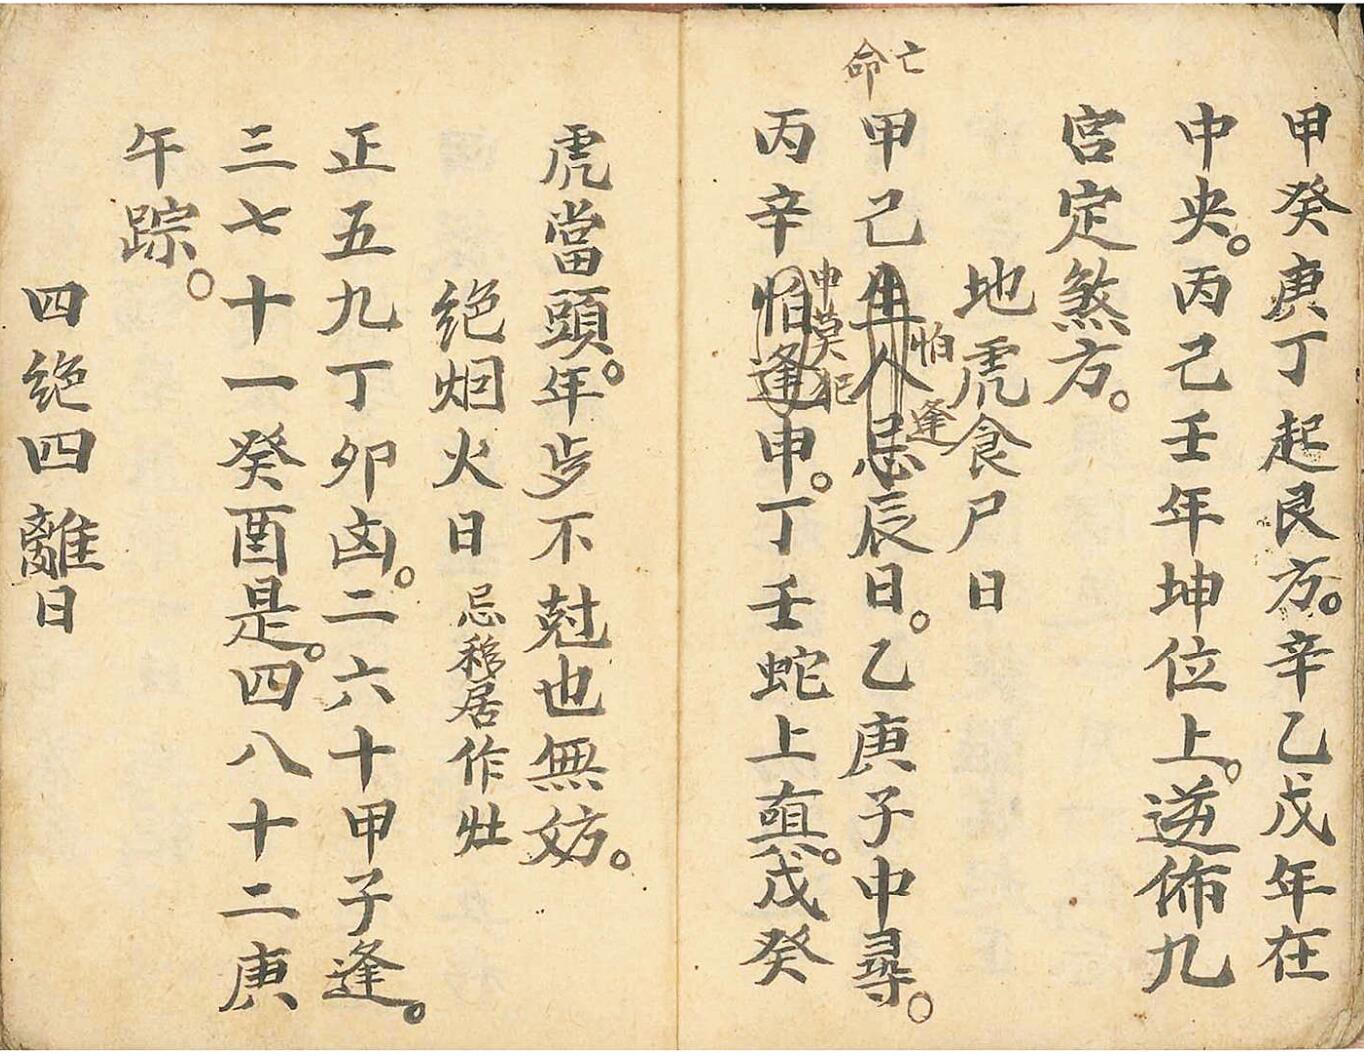 甲癸庚丁起艮方。辛乙戊年在
中央。丙己壬年坤位上。逆佈九
宮定煞方。
地虎食尸日
亡命
甲己生人忌辰日。乙庚子中尋。
怕逢
丙辛怕逢申。丁壬蛇上真。戊癸
中莫犯
虎當頭。年歩不尅也無妨。
绝烟火日 忌移居作灶
正五九丁卯凶。二六十甲子逢。
三七十一癸酉是。四八十二庚
午踪。
四绝四離日